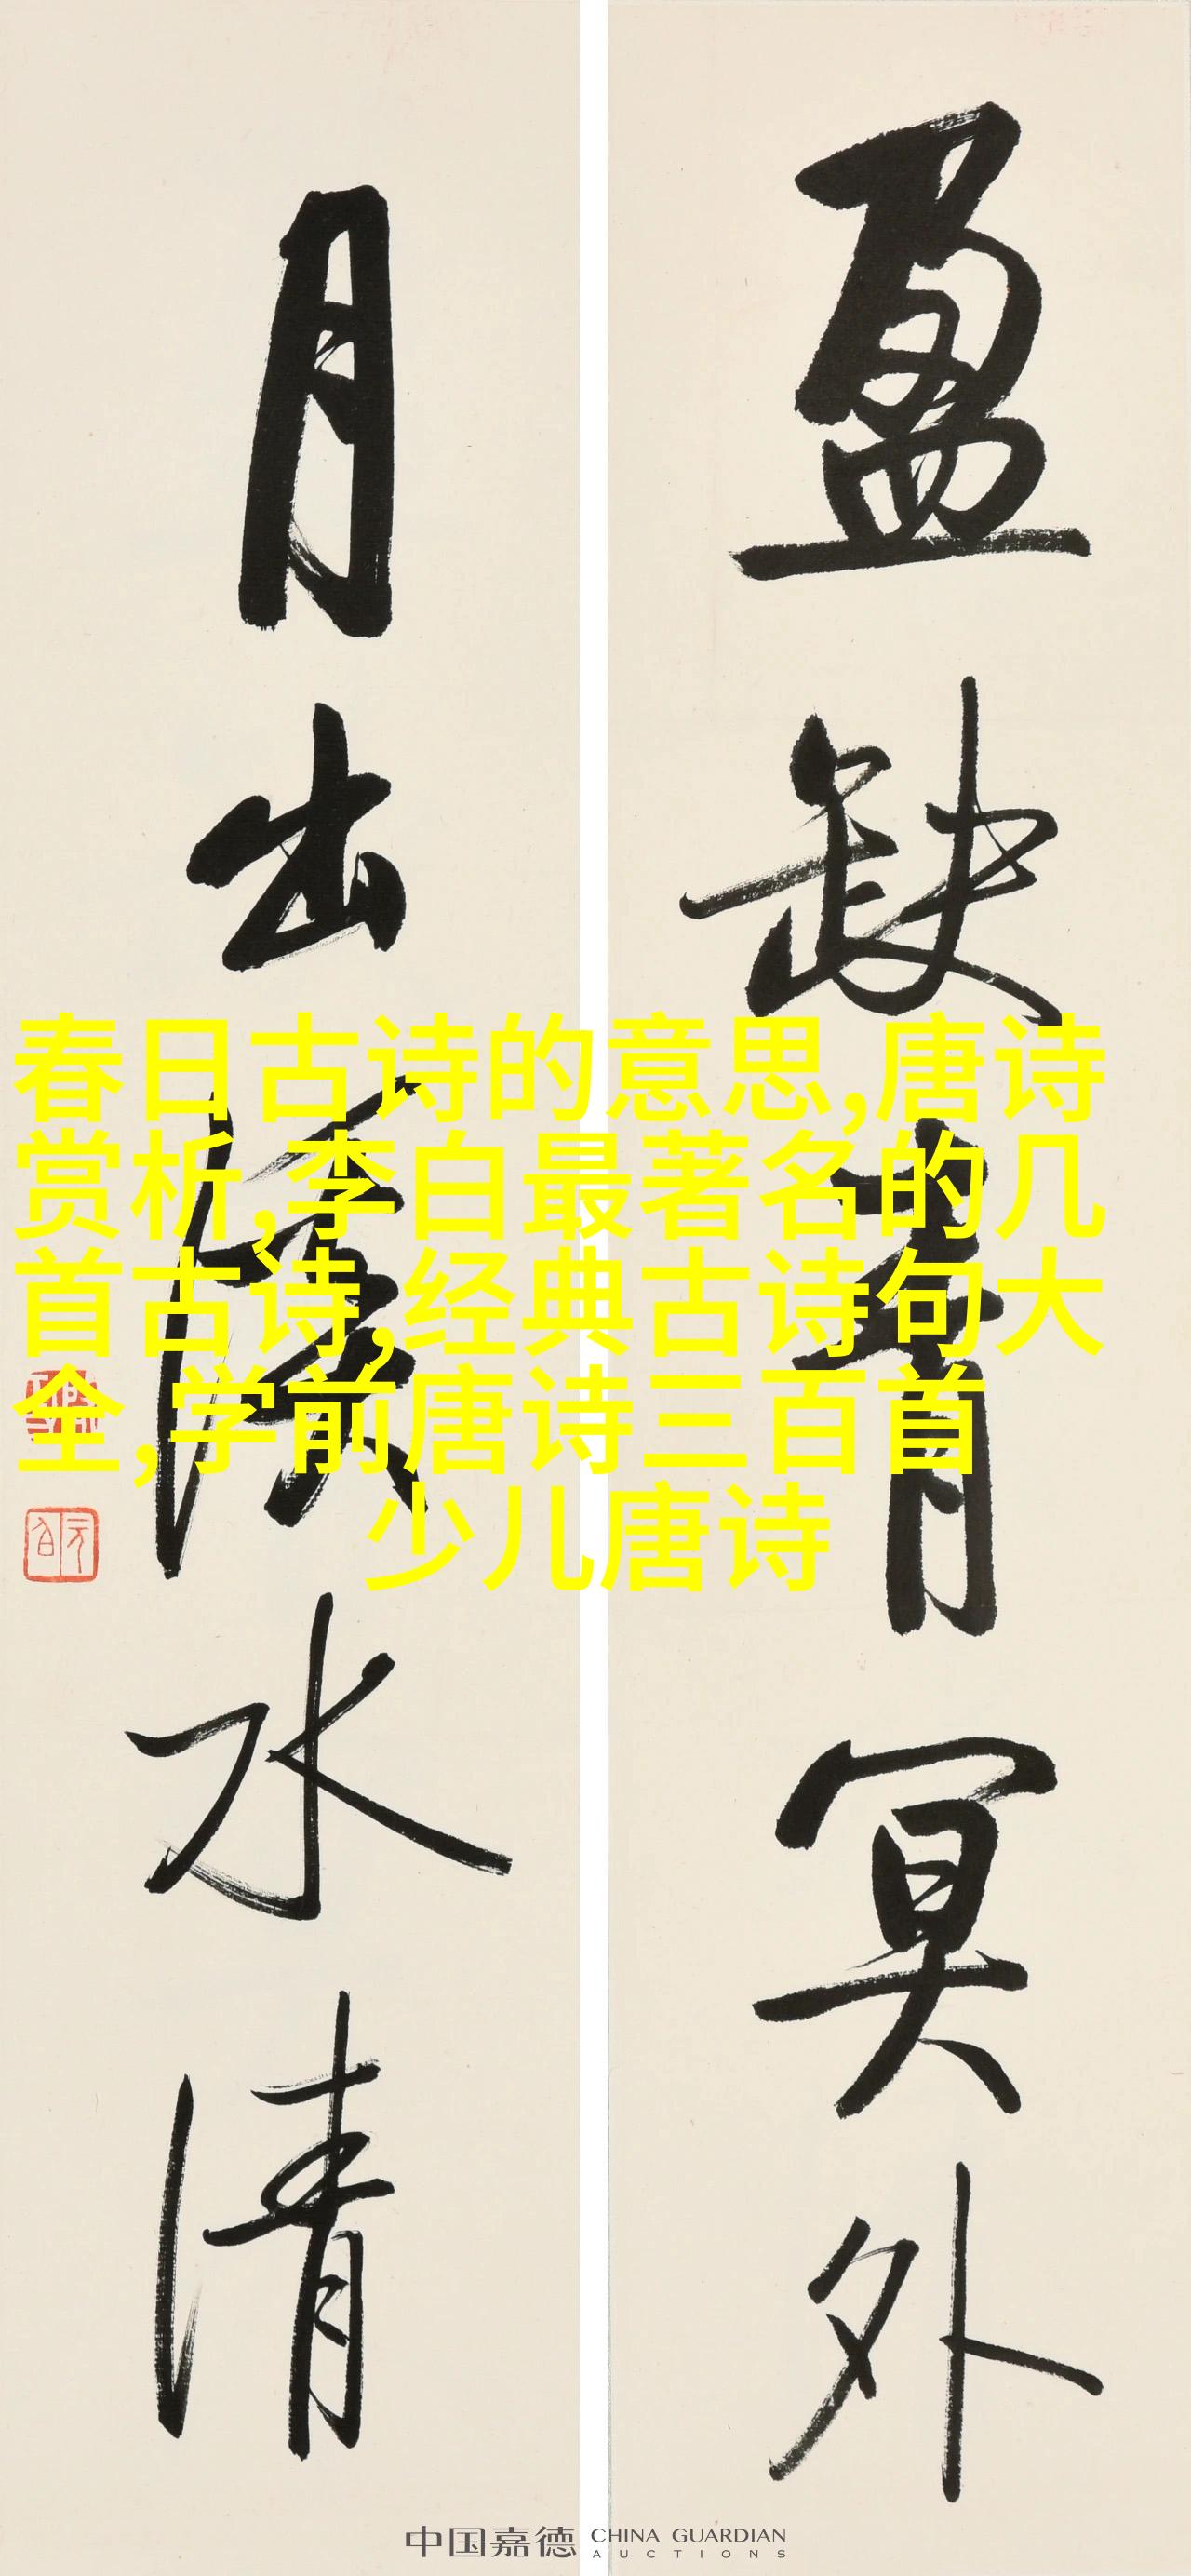 盈缺青冥外
月出漢水清
春日古诗的意思,唐诗
赏析,李白最著名的几
首古诗,经典古诗句大
全,学前唐诗三百首
少儿唐诗
中国嘉德 CHINA GUARDIAN
AUCTIONS